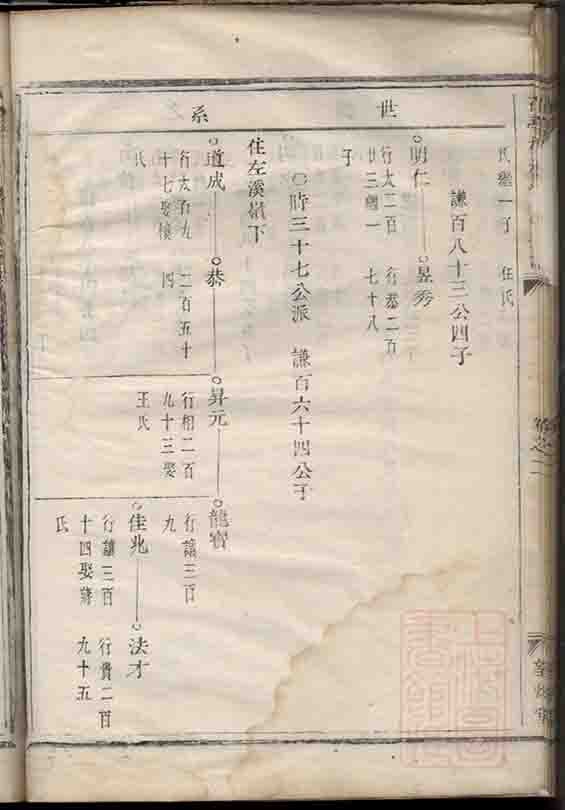 世系
氏繼一子
任氏
謙百八十三公四子
明仁
行太二百廿三繼一子
昱秀
行恭二百七十八
時三十七公派 謙百六十四公子
住左溪嶺下
道成
行太百九十七娶樓氏
恭
二百五十四
昇元
行相二百九十三娶王氏
龍寶
行讓三百九
佳兆
行讓三百十四娶蔣氏
法才
行貴二百九十五
卷之二